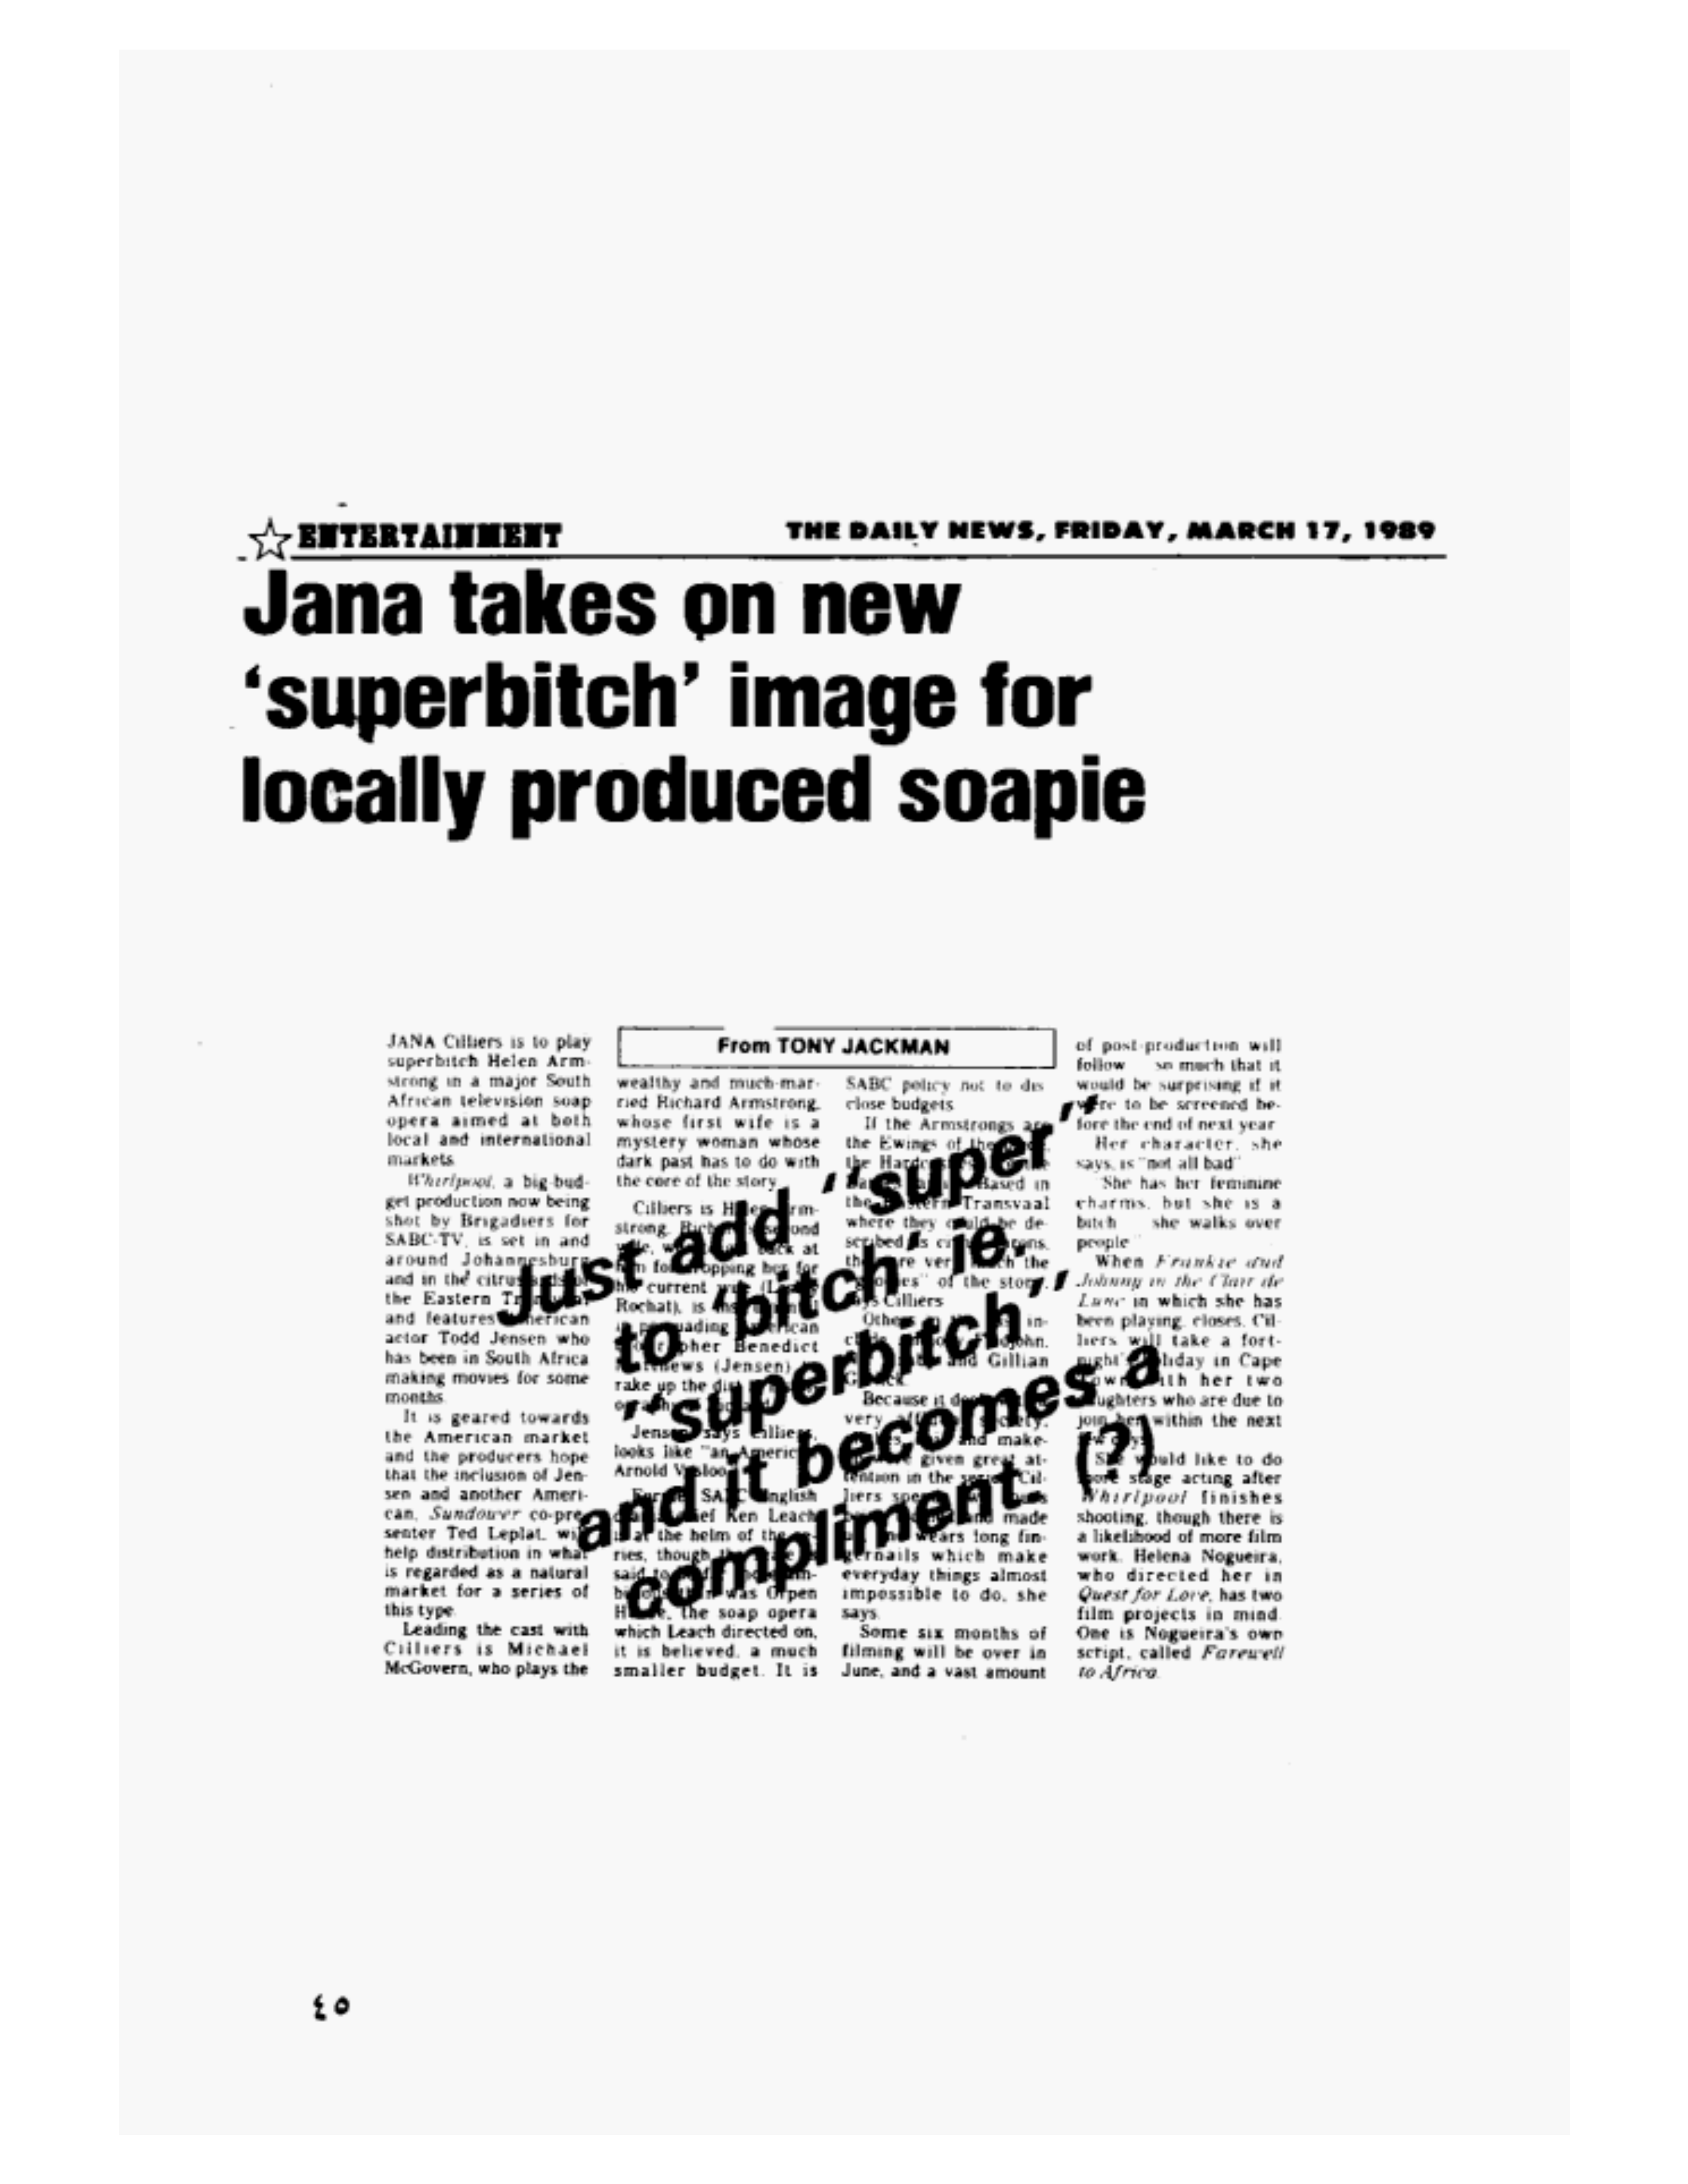 ENTERTAINMENT
THE DAILY NEWS, FRIDAY, MARCH 17, 1989
Jana takes on new
‘superbitch’ image for
locally produced soapie
JANA Cilliers is to play
superbitch Helen Arm-
strong in a major South
African television soap
opera aimed at both
local and international
markets
Whirlpool, a big-bud-
get production now being
shot by Brigadiers for
SABC-TV, is set in and
around Johannesburg
and in the citrus
the Eastern
and features American
actor Todd Jensen who
has been in South Africa
making movies for some
months
It is geared towards
the American market
and the producers hope
that the inclusion of Jen-
sen and another Ameri-
can, Sundowner co-pre-
senter Ted Leplat, will
help distribution in what
is regarded as a natural
market for a series of
this type.
Leading the cast with
Cilliers is Michael
McGovern, who plays the
From TONY JACKMAN
wealthy and much-mar-
ried Richard Armstrong,
whose first wife is a
mystery woman whose
dark past has to do with
the core of the story
Cilliers is Helen Arm-
strong, second
at
for
current
Rochat), is
American
Benedict
(Jensen)
rake up the
Jensen, says Cilliers,
looks like "an American
Arnold Vosloo
SABC English
Ken Leach
is at the helm of the se-
ries, though
said to
was Orpen
the soap opera
which Leach directed on,
it is believed, a much
smaller budget. It is
SABC policy not to dis
close budgets
If the Armstrongs are
the Ewings of the
the
Based in
the Eastern Transvaal
where they could be de-
scribed as
the
of the story,
says Cilliers
Others in-
and Gillian
Because it
very society,
and make-
given great at-
tention in the Cil-
liers
and made
wears long fin-
gernails which make
everyday things almost
impossible to do, she
says.
Some six months of
filming will be over in
June, and a vast amount
of post-production will
follow so much that it
would be surprising if it
were to be screened be-
fore the end of next year
Her character, she
says, is "not all bad"
"She has her feminine
charms, but she is a
bitch she walks over
people"
When Frankie and
Johnny in the Clair de
Lune in which she has
been playing, closes, Cil-
liers will take a fort-
night's holiday in Cape
Town with her two
daughters who are due to
join her within the next
few days
She would like to do
more stage acting after
Whirlpool finishes
shooting, though there is
a likelihood of more film
work. Helena Nogueira,
who directed her in
Quest for Love, has two
film projects in mind.
One is Nogueira's own
script, called Farewell
to Africa.
Just add ''super''
to 'bitch' ie.
''superbitch,''
and it becomes a
compliment. (?)
٤٥